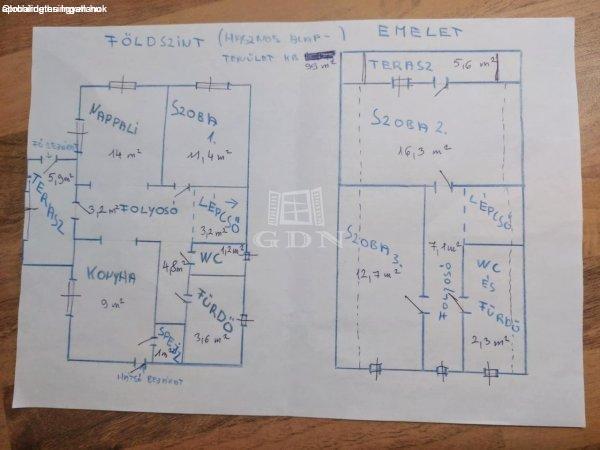 FÖLDSZINT (HASZNOS ALAP-
TERÜLET KB.
99 m²)
EMELET
TERASZ 5,6 m²
NAPPALI
14 m²
SZOBA
1.
11,4 m²
SZOBA 2.
16,3 m²
FŐ BEJÁRAT
5,9 m²
TERASZ
3,2 m²
FOLYOSÓ
LÉPCSŐ
3,2 m²
LÉPCSŐ
1,2 m²
WC
4,8 m²
KONYHA
9 m²
FÜRDŐ
3,6 m²
SPEJZ
1 m²
HÁTSÓ BEJÁRAT
SZOBA
3.
12,7 m²
7,1 m²
FOLYOSÓ
WC
ÉS
FÜRDŐ
2,3 m²
GDN